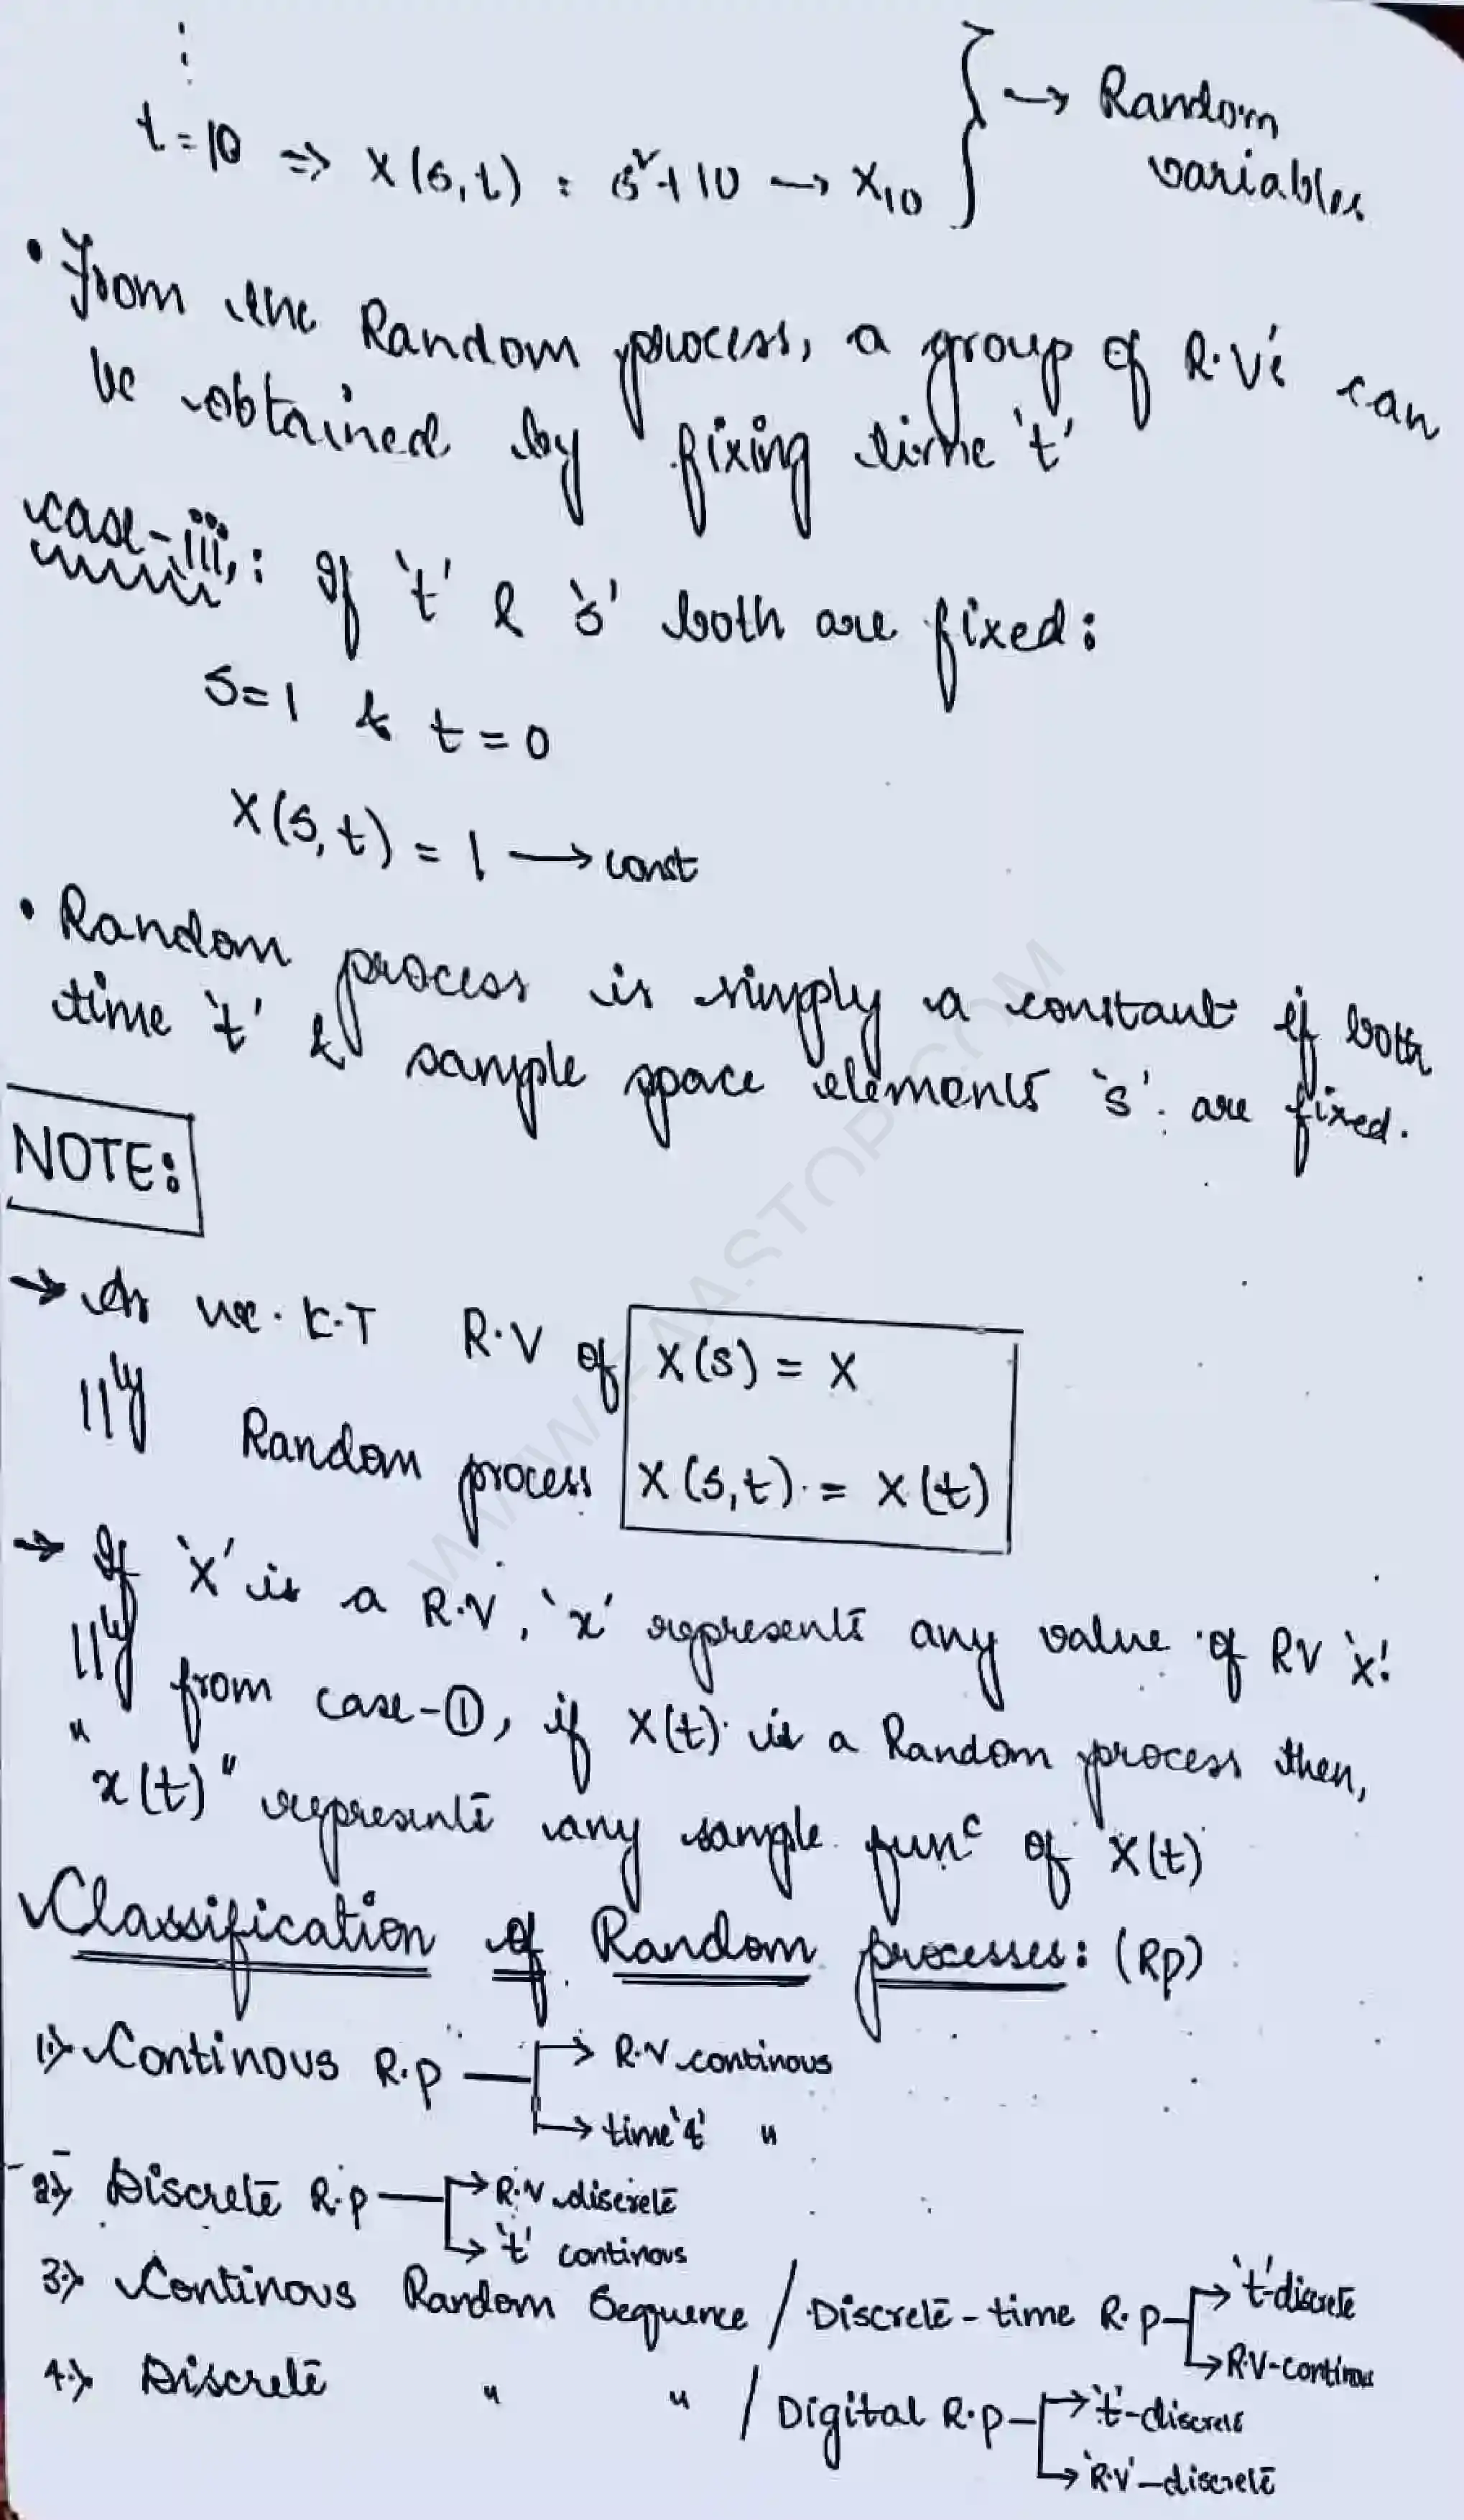 ⋮
t=10 => X(s,t) : s²+10 → X₁₀ } → Random
variables
• From the Random process, a group of R.V's can
be obtained by fixing time 't'
case-iii,: If 't' & 's' both are fixed:
s=1 & t=0
X(s,t) = 1 → const
• Random process is simply a constant if both
time 't' & sample space elements 's' are fixed.
NOTE:
→ As we.K.T R.V of X(s) = X
||ly Random process X(s,t) = X(t)
→ If 'X' is a R.V, 'x' represents any value of RV 'X'.
||ly from case-①, if X(t) is a Random process then,
"x(t)" represents any sample funᶜ of X(t)
Classification of Random processes: (Rp)
1.> Continous R.p → R.V continous
→ time 't' "
2.> Discrete R.p → R.V discrete
→ 't' continous
3.> Continous Random Sequence / Discrete-time R.p → 't'-discrete
→ R.V-continous
4.> Discrete " " / Digital R.p → 't'-discrete
→ 'R.V'-discrete